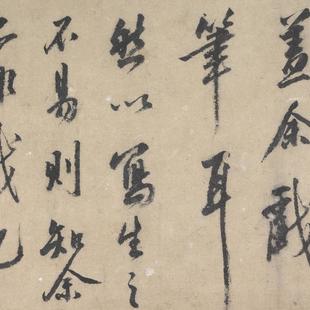 盖余戲
筆耳
然以寫生之
不易則知余